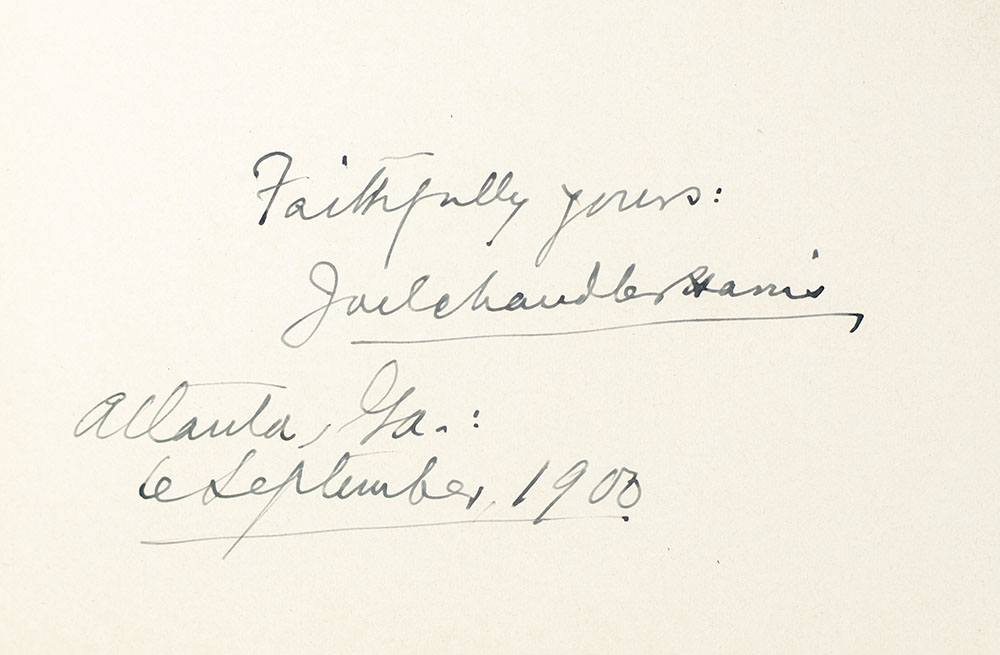 Faithfully yours:
Joel Chandler Harris
Atlanta, Ga.:
6 September, 1903.